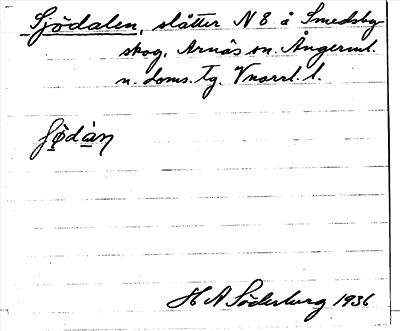 Sjödalen, slåtter N 8 å Smedsby-
skog, Arnäs sn. Ångerml.
n. doms. tg. Vnorrl. l.
H A Söderberg 1936